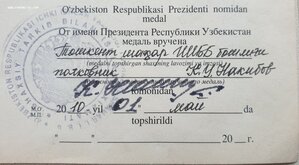 O'zbekiston Respublikasi Prezidenti nomidan
medal
От имени Президента Республики Узбекистан
медаль вручена
Тошкент шаҳар ИИББ бошлиғи
полковник К.У. Накибов
(medalni topshirgan shaxsning lavozimi va imzosi)
tomonidan
20 10 -yil 01 май da
М.О.
М.П.
topshirildi
20 г.